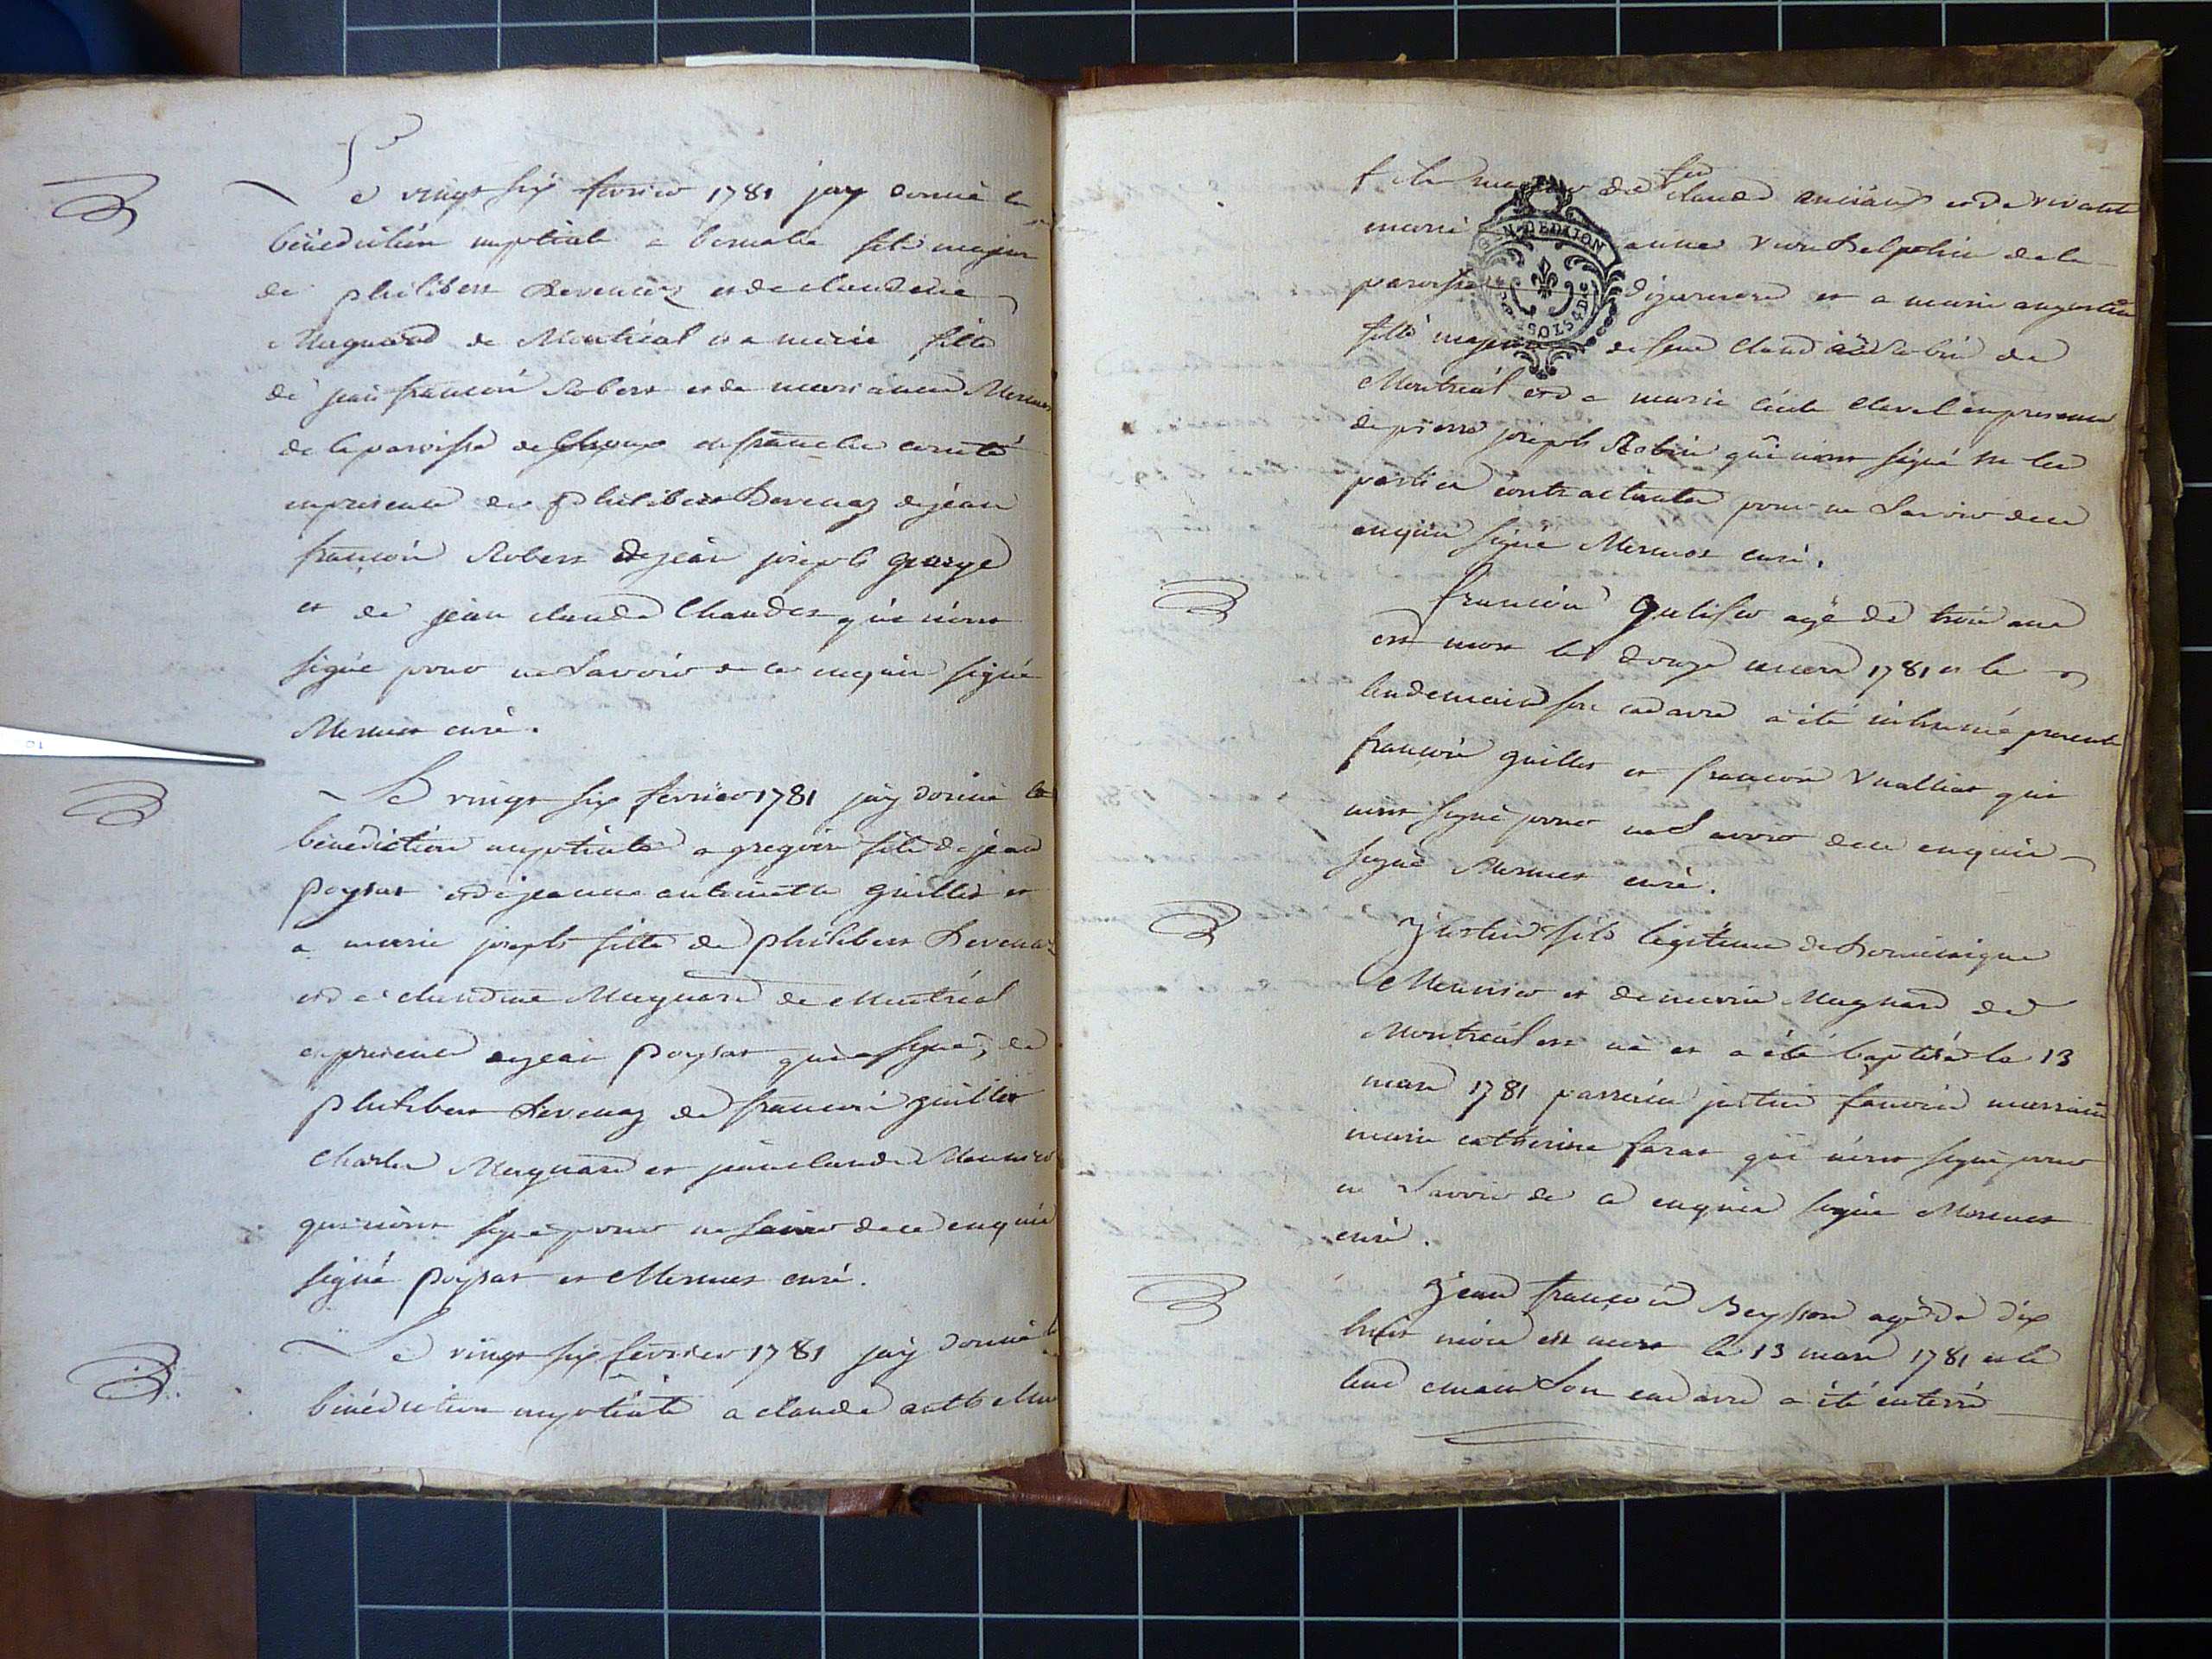 Le vingt six fevrier 1781 jay donné la
bénédiction nuptiale a fils majeur
de philibert Devenaz et de claudine
Mugnard de Montréal et a marie fille
de jean francois Robert et de marianne Mermet
de la paroisse de de franche comté
en presence de philibert Devenaz de jean
francois Robert de jean joseph george
et de jean claude Chaudet qui n'ont
signé pour ne Savoir de ce enquis signé
Mermet curé.
Le vingt six fevrier 1781 jay donné la
bénédiction nuptiale a gregoire fils de jean
poysat et de jeanne antoinette guillet et
a marie joseph fille de philibert Devenaz
et de claudine Mugnard de Montréal
en presence de jean poysat qui a signé, de
philibert Devenaz de francois guillet
Charles Mugnard et jean claude Meunier
qui n'ont signé pour ne Savoir de ce enquis
signé poysat et Mermet curé.
Le vingt six fevrier 1781 jay donné la
bénédiction nuptiale a claude anth
fils majeur de feu claude et de vivante
marie anne Delphin de la
paroisse et a marie
fille majeure de feu Claud Robin de
Montréal et de marie cécile Clavel en presence
de pierre joseph Robin qui n'ont signé ni les
parties contractantes pour ne Savoir de ce
enquis signé Mermet curé.
francois agé de trois ans
est mort le douze mars 1781 et le
lendemain son cadavre a été inhumé presents
francois guillet et francois Vualliat qui
n'ont signé pour ne Savoir de ce enquis
signé Mermet curé.
Justin fils légitime de Dominique
Meunier et de marie Mugnard de
Montréal est né et a été baptisé le 13
mars 1781 parrein justin marraine
marie catherine farat qui n'ont signé pour
ne Savoir de ce enquis signé Mermet
curé.
Jean francois Beysson agé de dix
huit mois est mort le 13 mars 1781 et le
lendemain Son cadavre a été enterré